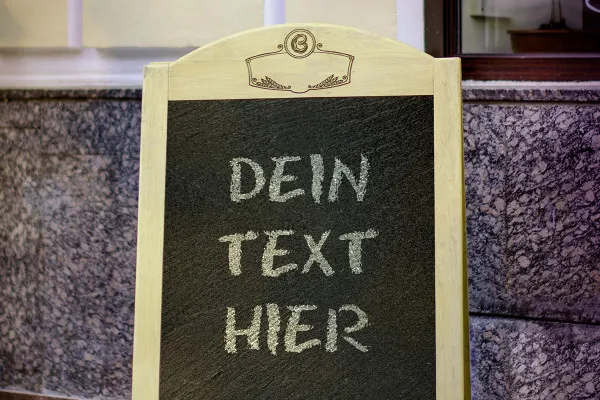 DEIN
TEXT
HIER